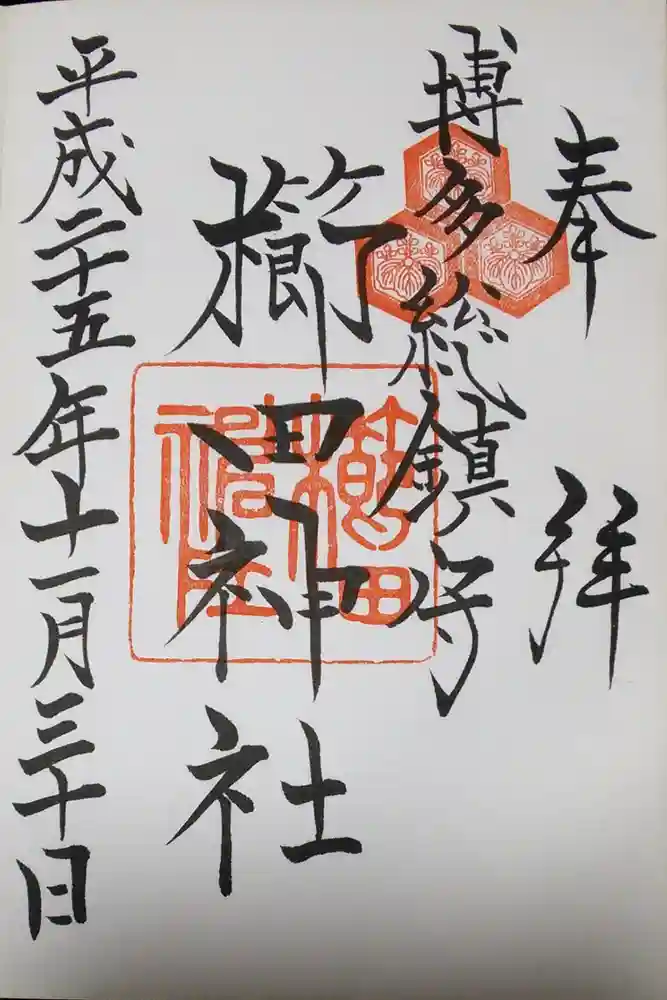 奉拝
博多総鎮守
櫛田神社
平成二十五年十一月三十日